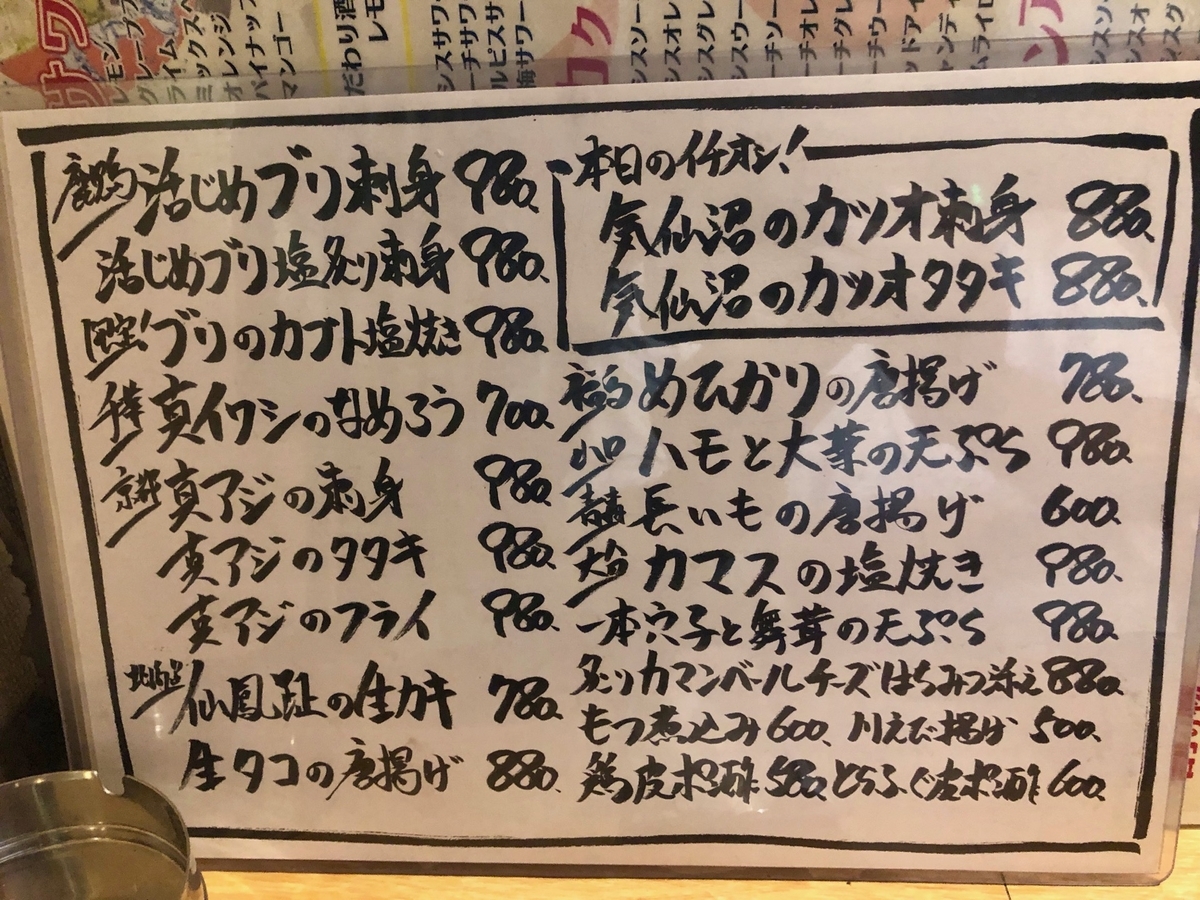 サワ
レモン
グレープフ
ライム
ミックスベ
オレンジ
パイナップ
マンゴー
だわり酒
レモ
シスサワ
ーチサワー
ルピスサ
海サワー
コク
シスソー
シスオレ
シスグレ
シスウー
ーチソー
ーチオレ
ーチグレ
ーチウー
ッドアイ
ャンディ
ムライロ
鹿児島 活じめブリ刺身 980.
活じめブリ塩炙り刺身 980.
限定!ブリのカブト塩焼き 980.
千葉 真イワシのなめろう 700.
京都 真アジの刺身 980.
真アジのタタキ 980.
真アジのフライ 980.
北海道 仙鳳趾の生カキ 780.
生タコの唐揚げ 880.
本日のイチオシ!
気仙沼のカツオ刺身 880.
気仙沼のカツオタタキ 880.
福島 めひかりの唐揚げ 780.
山口 ハモと大葉の天ぷら 980.
青森 長いもの唐揚げ 600.
大分 カマスの塩焼き 980.
一本穴子と舞茸の天ぷら 980.
炙りカマンベールチーズはちみつ添え 880.
もつ煮込み 600. 川えび揚げ 500.
鶏皮ポン酢 580. とらふぐ皮ポン酢 600.